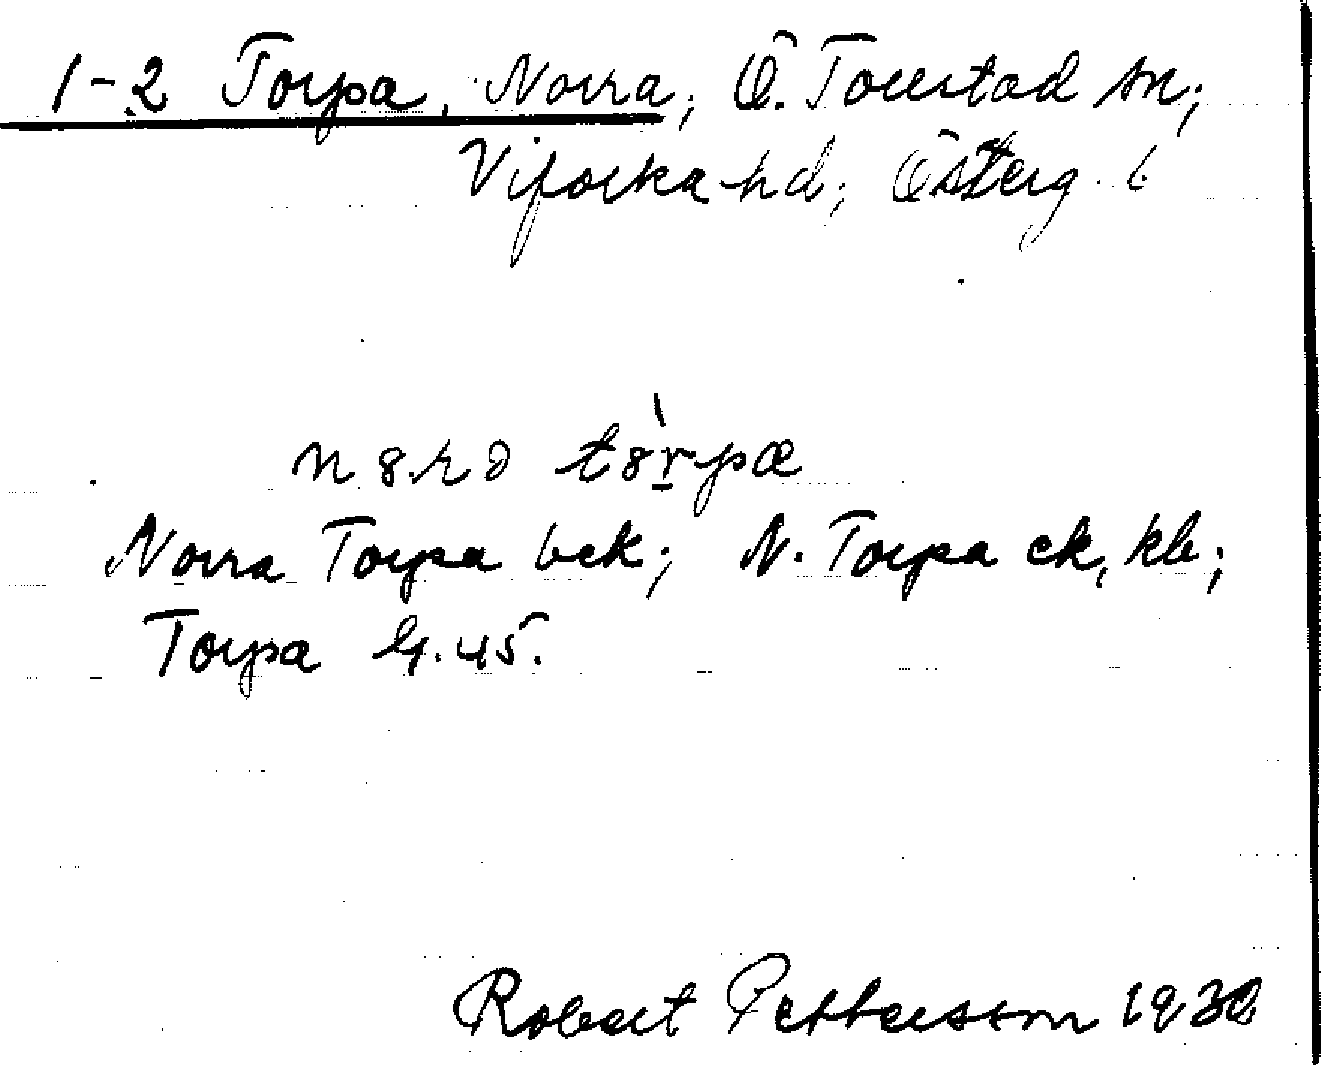 1-2 Torpa, Norra, Ö. Tollstad sn;
Vifolka hd, Österg. l
n8rə tö̀rpa
Norra Torpa bek; N. Torpa ek, kb;
Torpa G. 45.
Robert Pettersson 1932